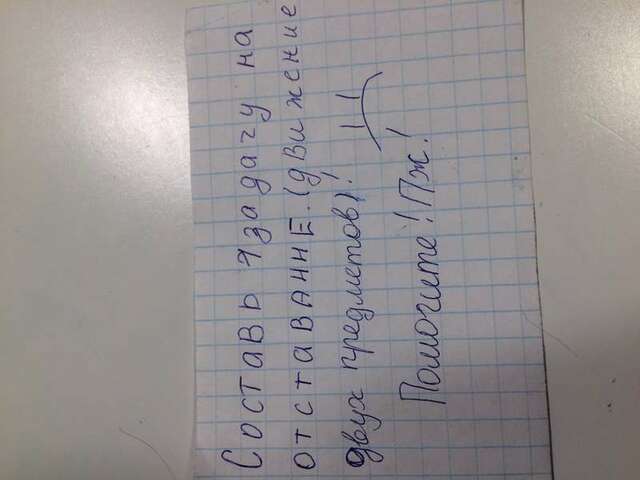 Составь 1 задачу на
отставание. (движение
двух предметов)!
Помогите! Пж!